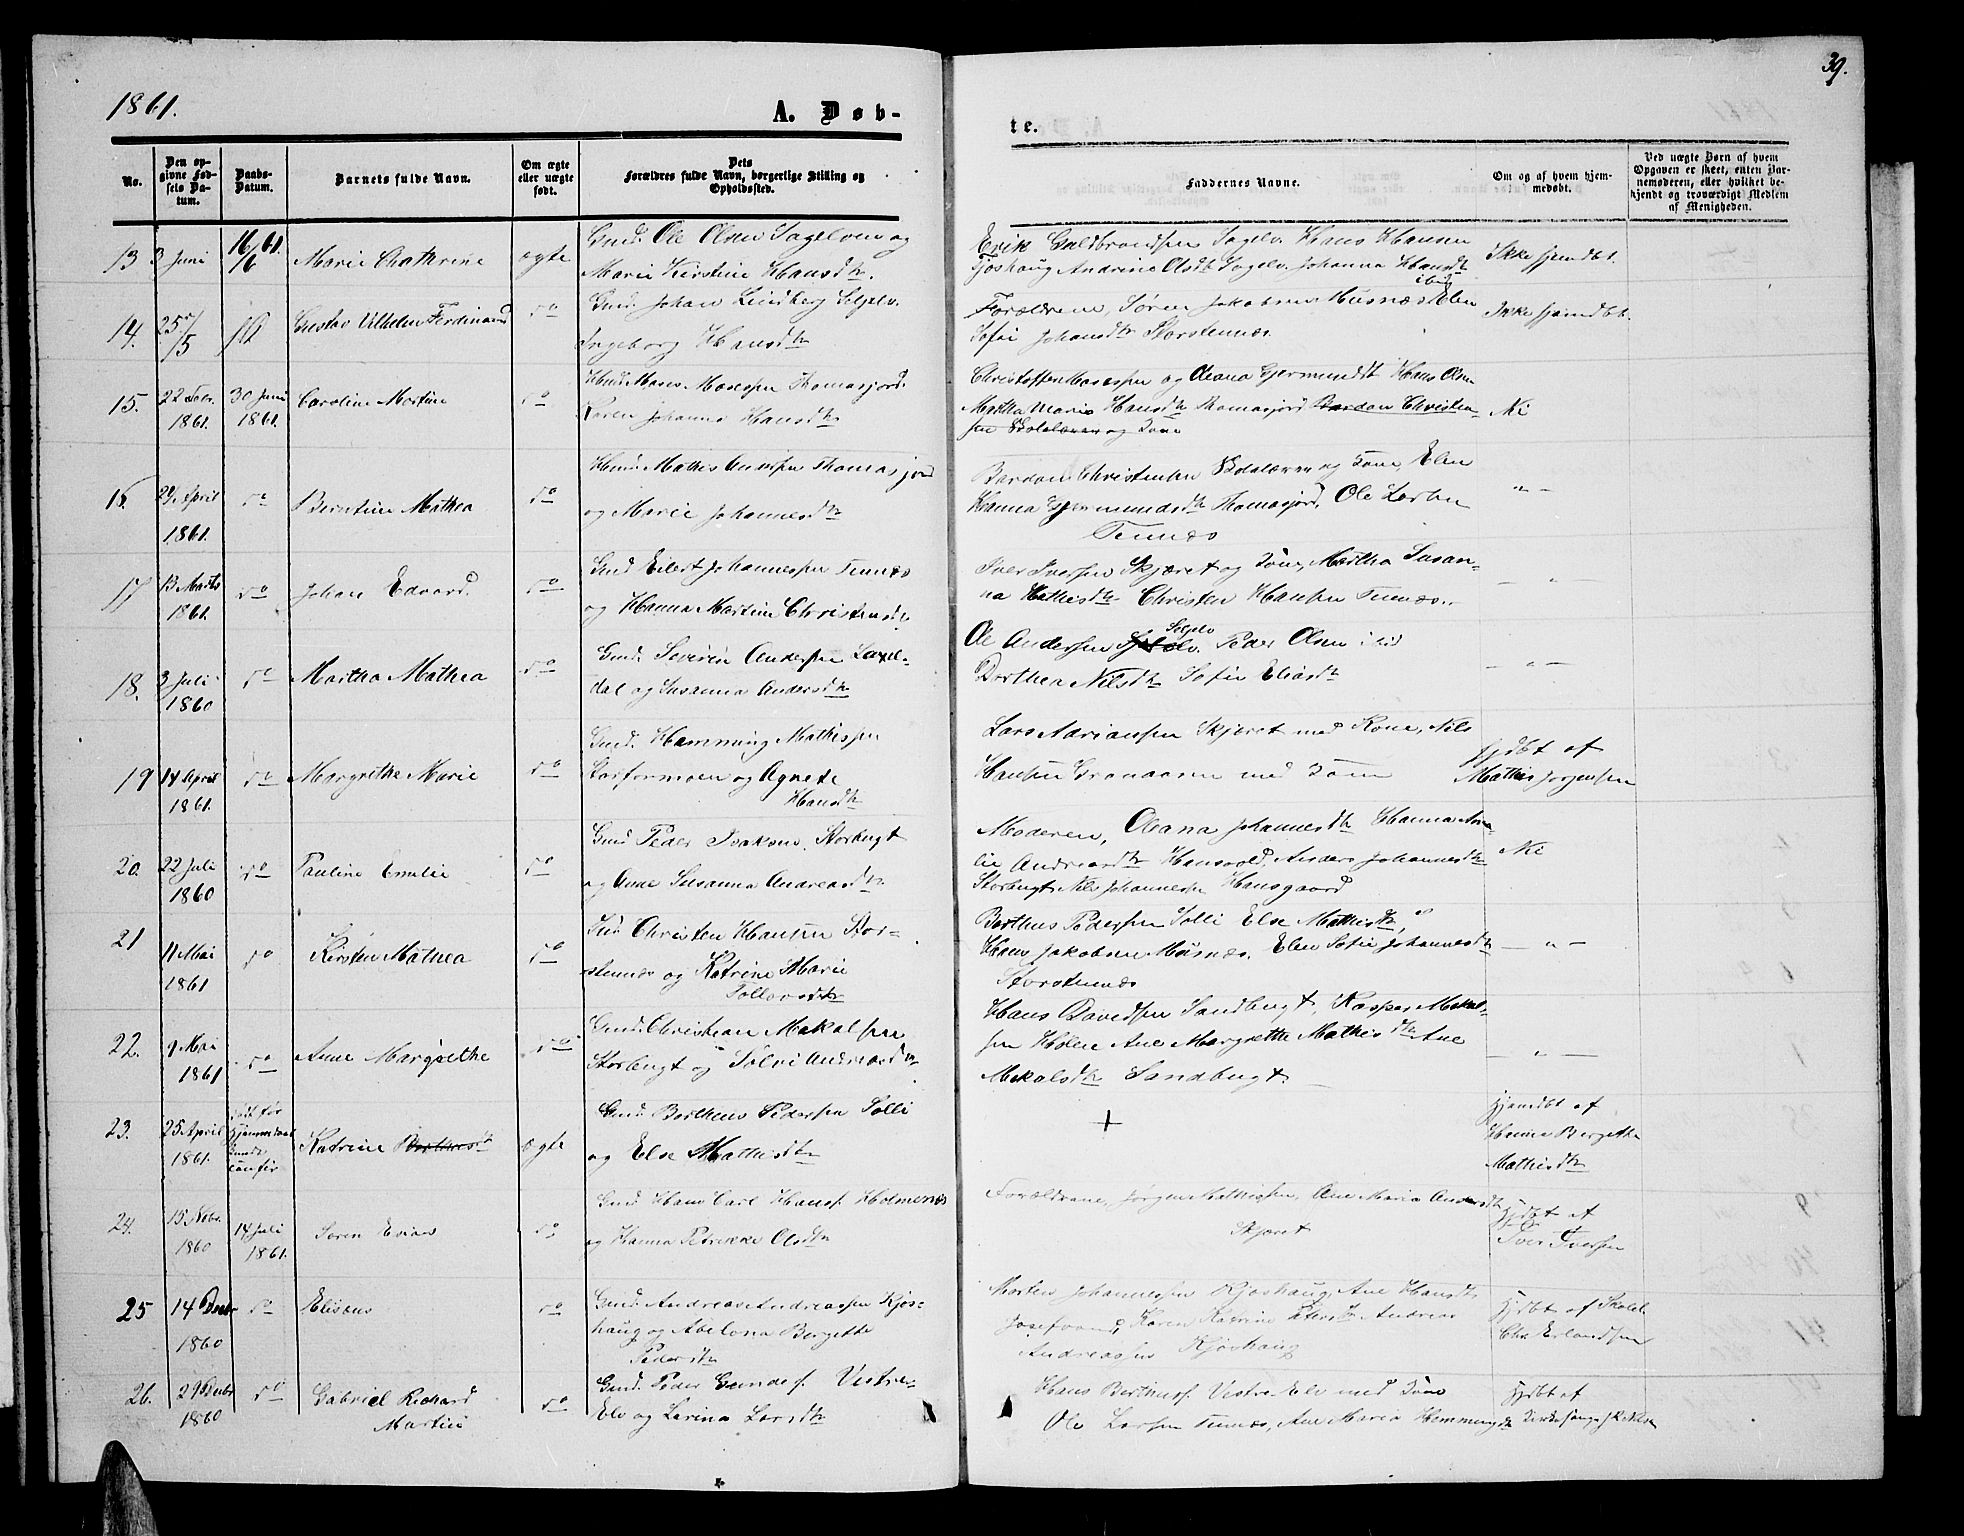 1861.
A. Døb-
te.
39.
No.
Den op-
givne Fød-
sels Da-
tum.
Daabs-
Datum.
Barnets fulde Navn.
Om ægte
eller uægte
født.
Dets
Forældres fulde Navn, borgerlige Stilling og
Opholdssted.
Faddernes Navne.
Om og af hvem hjem-
medøbt.
Ved uægte Børn af hvem
Opgaven er skeet, enten Bar-
nemoderen, eller hvilket be-
kjendt og troværdigt Medlem
af Menigheden.
13 3 Juni 16/6 61. Marie Cathrine ægte
Gmd. Ole Olsen Sagelven og
Marie Kirstine Hansdtr.
Erik Guldbrandsen Sagelv. Hans Hansen
Tjoshaug Andrine Olsdtr Sagelv. Johanna Hansdtr
ibid
Ikke hjemdbt.
14. 25/5 16 Gustav Vilhelm Ferdinand do
Gmd. Johan Lindberg Selelv.
Ingeborg Hansdtr
Forældrene, Søren Jakobsen Husnæs Elen
Sofie Johansdtr Storstennæs.
Ikke hjemdbt.
15. 22 Febr. 1861. 30 Juni 1861. Caroline Martine do
Hmd. Moses Mosessen Thomasjord.
Karen Johanna Hansdtr
Christoffer Mosessen og Oleana Gjermundsdt Hans Olsen
Martha Maria Hansdtr Thomasjord Bardon Christen-
sen og Kone
Nei
16. April 1861. do Berntine Mathea do
Hmd. Mathis Thomasjord
og Marie Johannesdtr
Bardon Christensen og Kone, Elen
Hanna Gjermundsdtr Thomasjord, Ole Larsen
Tennæs
— " —
17 13 Marts 1861. do Johan Edvard. do
Gmd Eilert Johannessen Tennæs
og Hanna Martine Christensdtr
Iver Iversen Skjæret og Kone, Martha Susan-
na Mathisdtr Christen Hansen Tennæs.
— " —
18. 3 Juli 1860 do Martha Mathea do
Gmd. Severin Andersen Laxel-
dal og Susanna Andersdtr
Selelv
Ole Andersen Peder Olsen ibid
Dorthea Nilsdtr Sofie Eliasdtr
— " —
19 14 April 1861. do Margrethe Marie do
Gmd. Hemming Mathissen
Storformoen og Agnete
Hansdtr
Lars Adriansen Skjæret med Kone, Nils
Hansen Grønaasen med Kone
hjdbt af
Mathis Jørgensen
20. 22 Juli 1860 do Pauline Emilie do
Gmd Peder Isaksen, Storbugt
og Anne Susanna Andreasdtr
Moderen, Oleana Johannesdtr Hanna Ama-
lie Andreasdtr Hansvold, Anders Johannesdtr
Storbugt Nils Johannessen Hansgaard
Nei
21 11 Mai 1861 do Kirsten Mathea do
Gmd. Christen Hansen Stor-
stennæs og Katrine Marie
Tollersdtr
Berthus Pedersen Solli Else Mathisdtr,
Hans Jakobsen Musnæs. Elen Sofie Johannesdtr
Storstennæs
— " —
22. 9 Mai 1861 do Anne Margrethe do
Gmd. Christian Mekalsen
Storbugt og Sølvi Andreasdtr
Hans Davidsen Sandbugt, Kasper Mekal-
sen Holen Ane Margrethe Mathisdtr Ane
Mekalsdtr Sandbugt.
— " —
23. 25 April 1861. død før Katrine Berthusdtr ægte
Gmd. Berthus Pedersen Solli
og Else Mathisdtr
+
hjemdbt af
Hanna Bergethe
Mathisdtr
24. 15 Nobr. 1860 14 Juli 1861. Søren Evian do
Gmd Hans Carl Hans. Holmenæs
og Hanna Petrikke Olsdtr
Forældrene, Jørgen Mathissen, Ane Maria Andersdtr
Skjæret
hjdbt af
Iver Iversen
25 14 Decbr 1860 do Elisæus do
Gmd. Andreas Andreassen Kjos-
haug og Abelona Bergitte
Pedersdtr
Morten Johannessen Kjoshaug Ane Hansdtr
Josefvand, Karen Katrine Andreas
Andreassen Kjoshaug
hjdbt af Skolel.
Chr. Erlandsen
26. 29 Decbr 1860 do Gabriel Richard
Martin do
Gmd. Peder Gundes. Vestre-
Elv og Larina Larsdtr
Hans Berthus. Vestre Elv med Kone
Ole Larsen Tennæs, Ane Maria Hemmingsdtr
hjdbt af